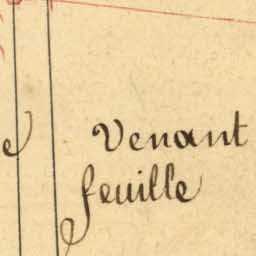 e Venant
feuille